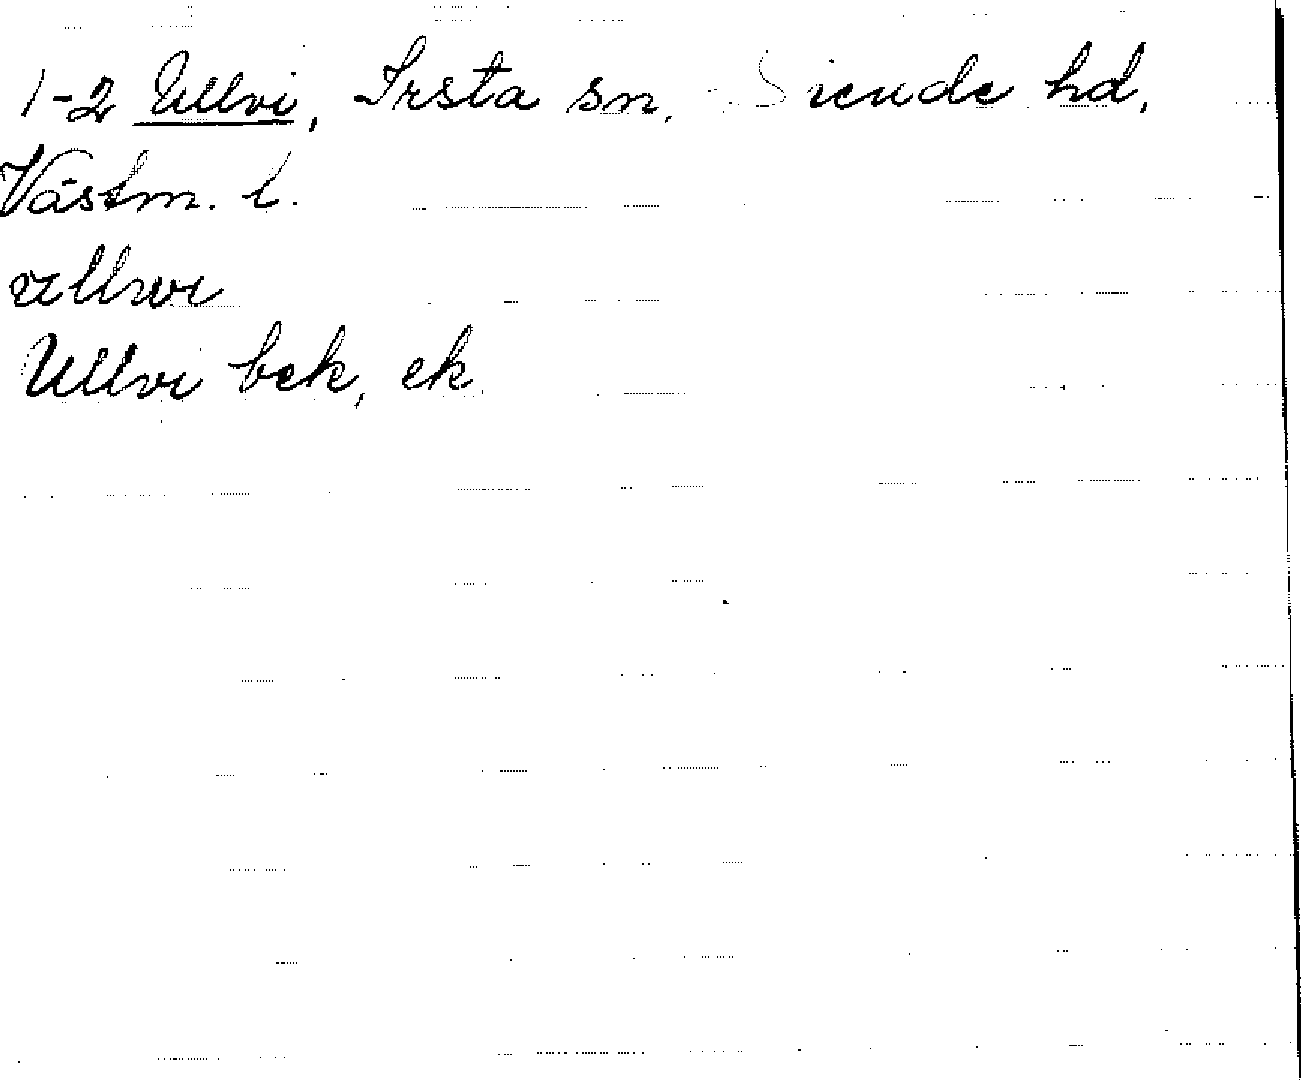 1-2 Ullvi, Irsta sn, Siende hd,
Västm. l.
ullvi
Ullvi bek, ek